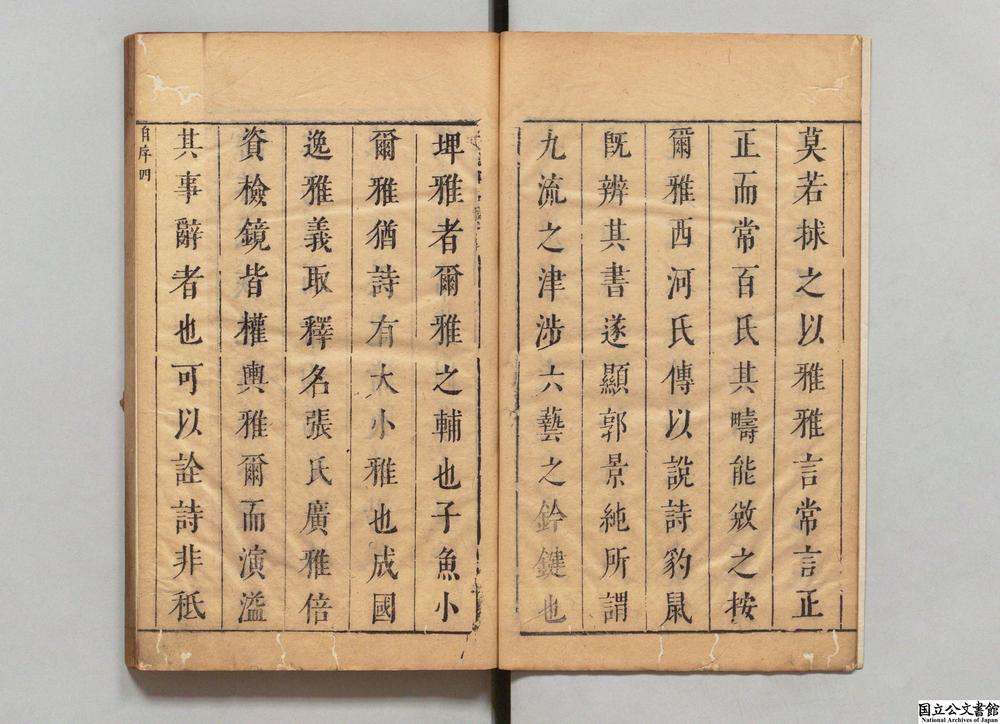 莫若捄之以雅雅言常言正
正而常百氏其疇能敚之按
爾雅西河氏傳以說詩豹鼠
旣辨其書遂顯郭景純所謂
九流之津涉六藝之鈐鍵也
埤雅者爾雅之輔也子魚小
爾雅猶詩有大小雅也成國
逸雅義取釋名張氏廣雅倍
資檢鏡皆權輿雅爾而演溢
其事辭者也可以詮詩非秪
自序 四
国立公文書館
National Archives of Japan